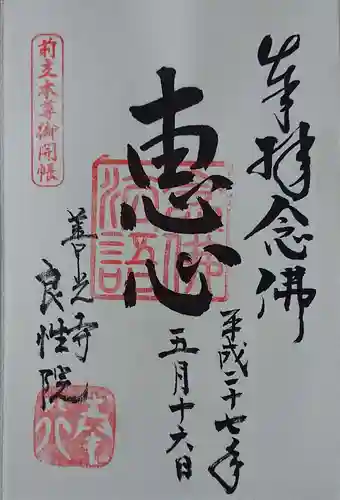 奉拝念佛
平成二十七年
五月十六日
恵心
善光寺
良性院
前立本尊御開帳
念佛法語